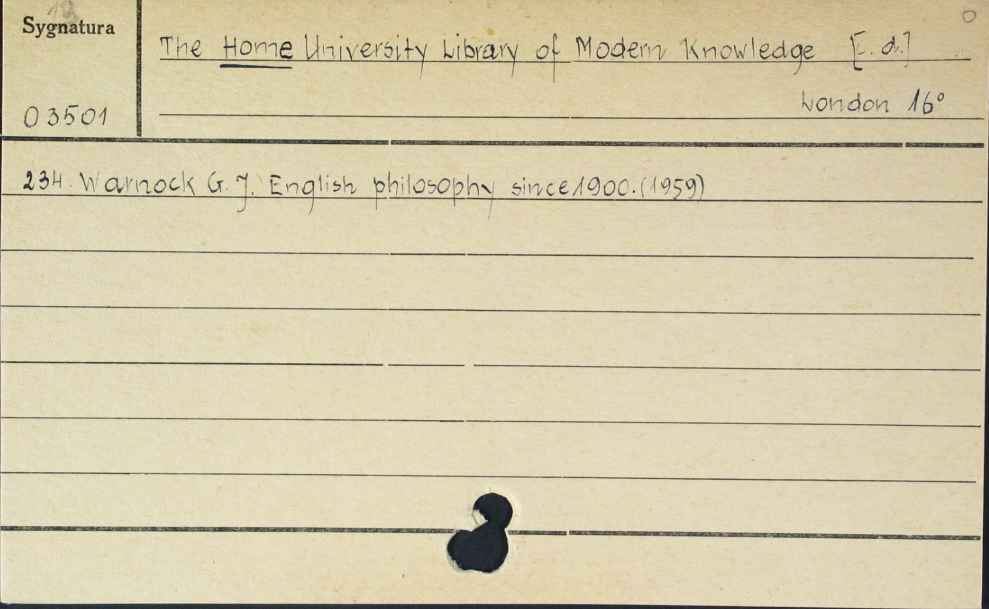 Sygnatura
The Home University Library of Modern Knowledge [C. d.]
London 16°
03501
234. Warnock G. J. English philosophy since 1900. (1959)